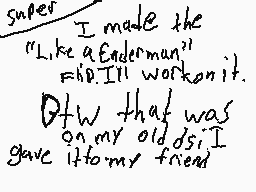 super
I made the
"Like a Enderman"
FHD. I'll work on it.
Btw that was
on my old dsi I
gave it to my friend